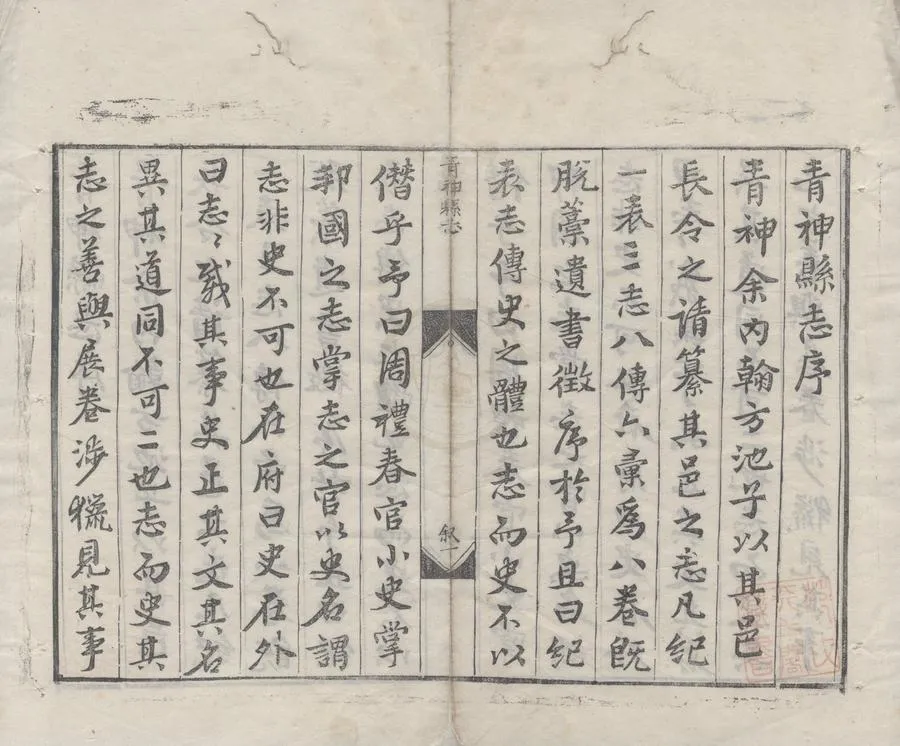 青神縣志序
青神余內翰方池子以其邑
長令之請纂其邑之志凡紀
一表三志八傳六彙爲八卷既
脫藁遺書徵序於予且曰紀
表志傳史之體也志而史不以
青神縣志
叙一
僭乎予曰周禮春官小史掌
邦國之志掌志之官以史名謂
志非史不可也在府曰史在外
曰志志載其事史正其文其名
異其道同不可二也志而史其
志之善與展卷涉獵見其事